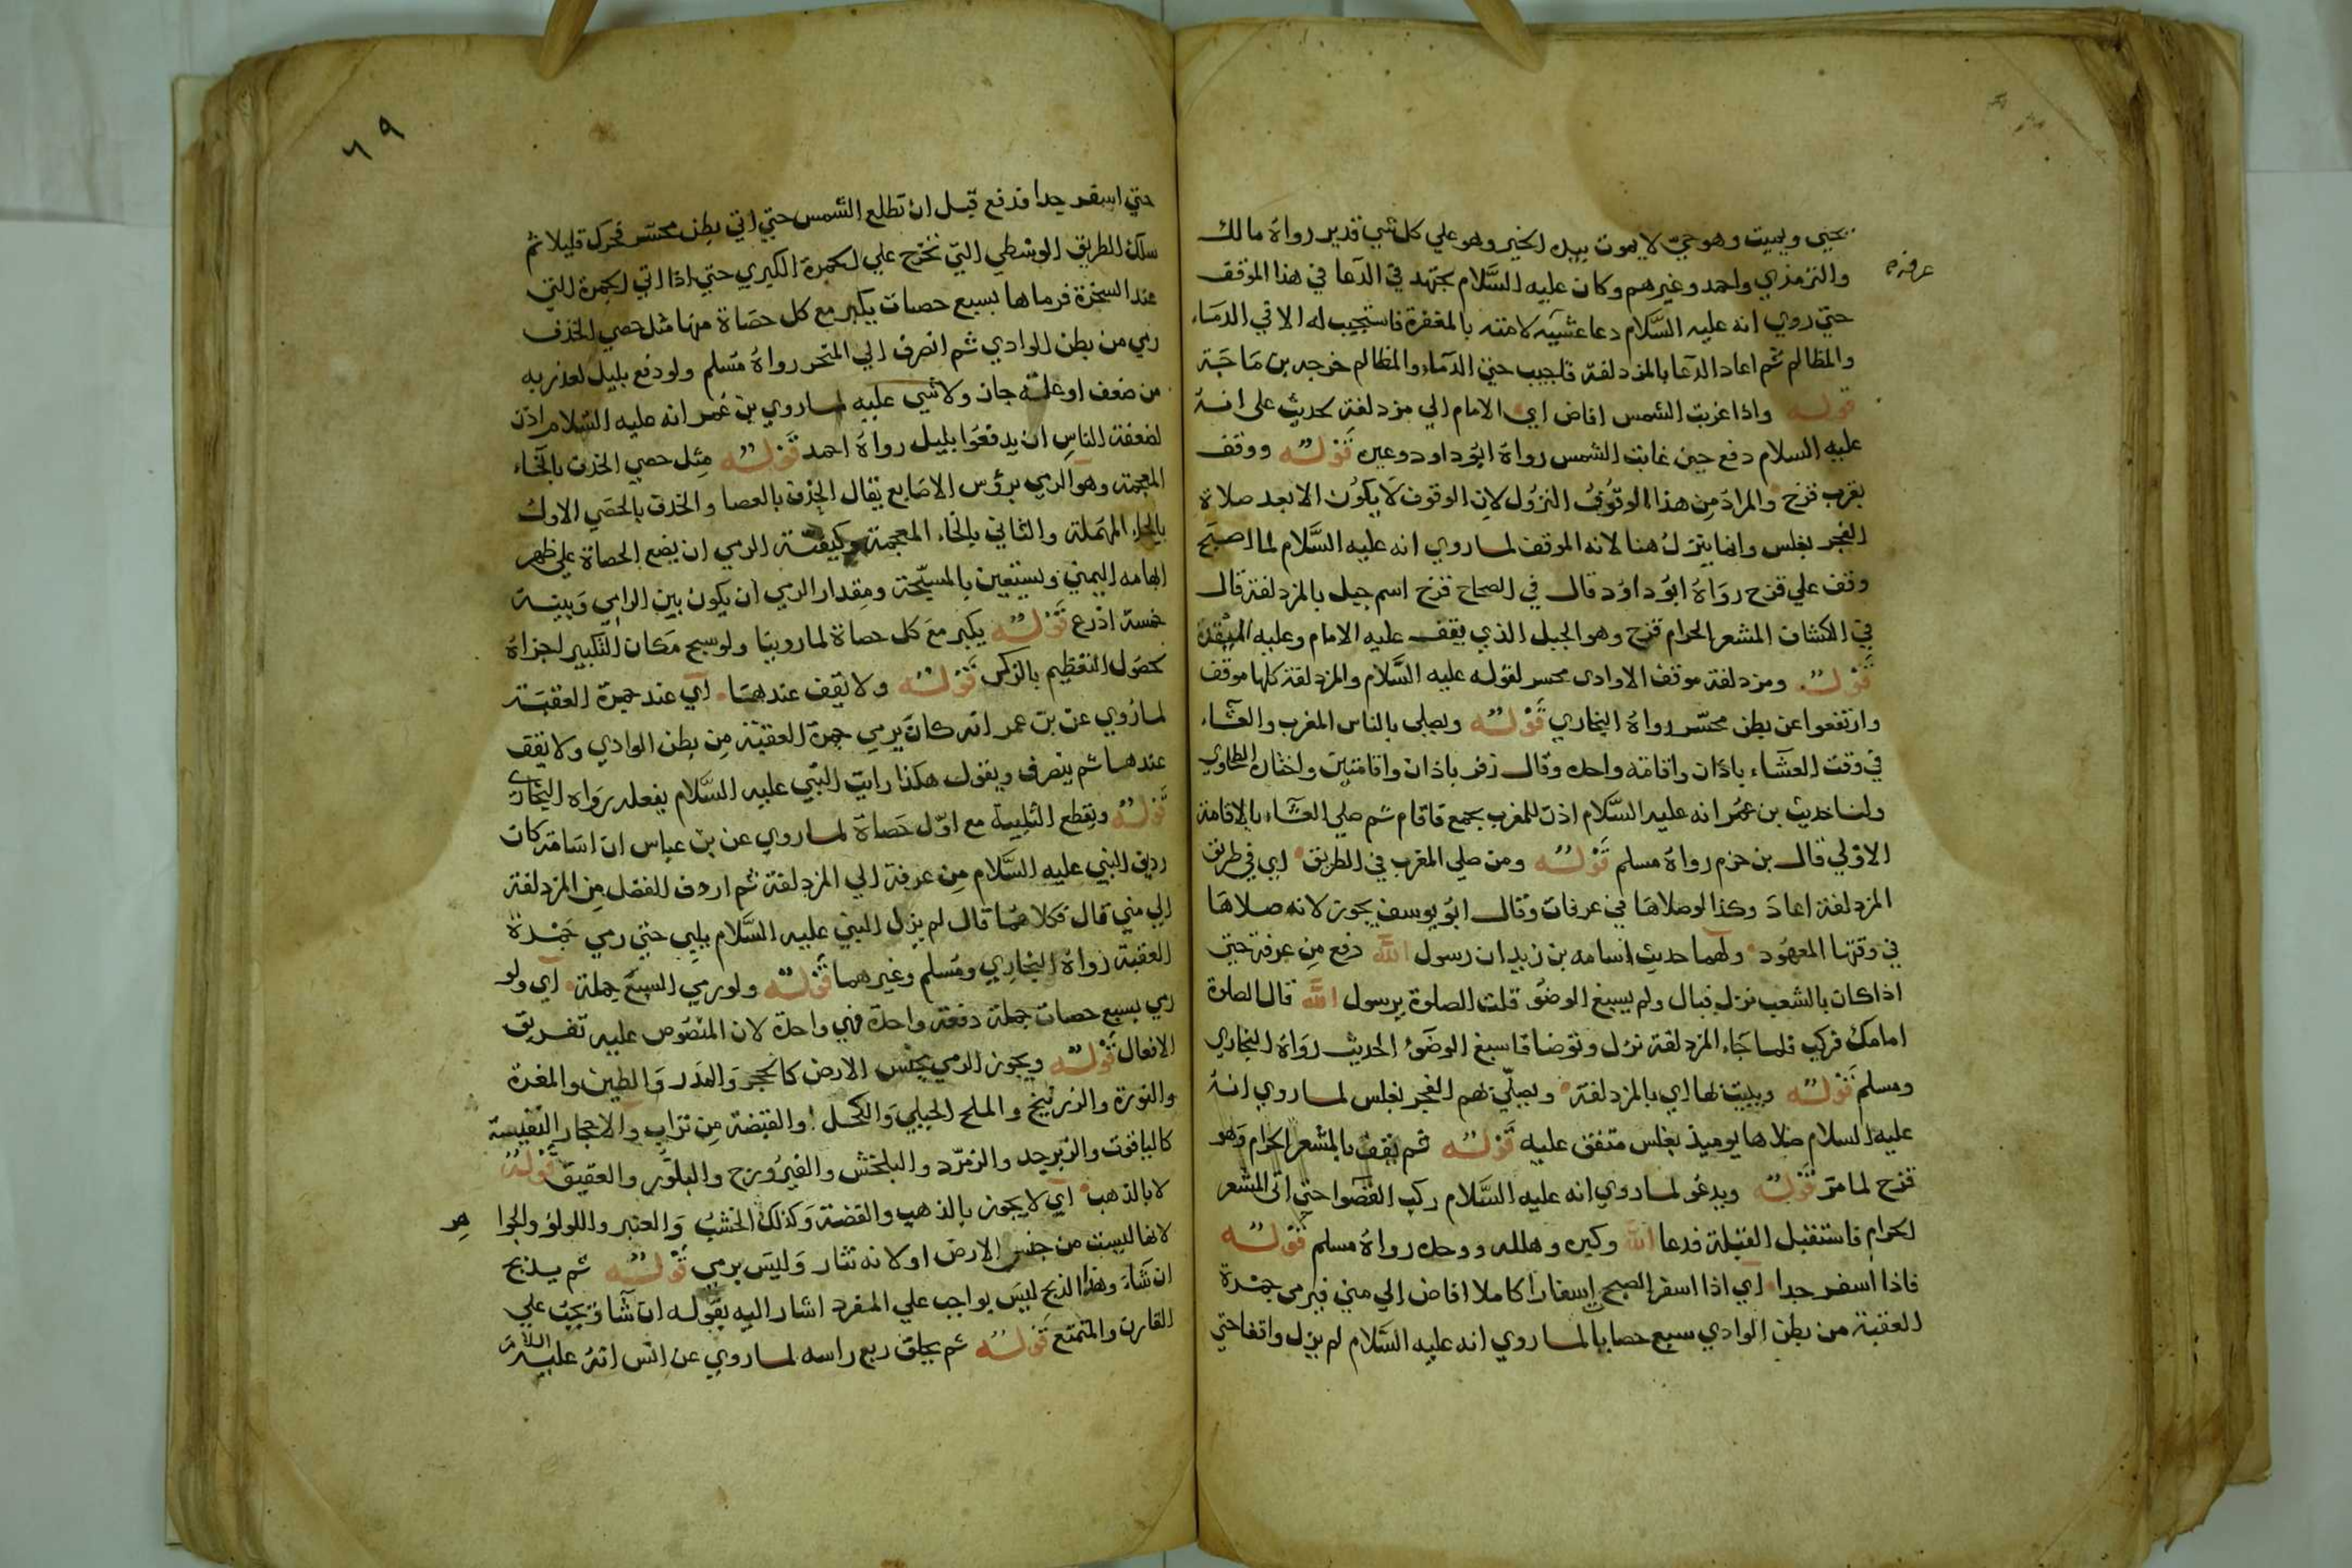 يحيي ويميت وهو حي لا يموت بيده الخير وهو علي كل شي قدير رواه مالك
والترمذي واحمد وغيرهم وكان عليه السَّلام يجتهد في الدعا في هذا الموقف
عرفة
حتي روي انه عليه السَّلام دعا عشية لامته بالمغفرة فاستجيب له الا في الدماء
والمظالم ثم اعاد الدعا بالمزدلفة فاجيب حتي الدماء والمظالم خرجه بن ماجة
قوله واذا غربت الشمس افاض اي الامام الي مزدلفة لحديث علي انه
عليه السلام دفع حين غابت الشمس رواه ابو داود وغيره قوله ووقف
بقرب قزح والمراد من هذا الوقوف النزول لان الوقوف لا يكون الا بعد صلاة
الفجر بغلس وانما ينزل هنا لانه الموقف لما روي انه عليه السَّلام لما اصبح
وقف علي قزح رواه ابو داود قال في الصحاح قزح اسم جبل بالمزدلفة قال
في الكشاف المشعر الحرام قزح وهو الجبل الذي يقف عليه الامام وعليه الميقدة
قوله ومزدلفة موقف الا وادى محسر لقوله عليه السَّلام والمزدلفة كلها موقف
وارتفعوا عن بطن محسر رواه البخاري قوله ويصلي بالناس المغرب والعشاء
في وقت العشاء باذان واقامة واحدة وقال زفر باذان واقامتين واختاره الطحاوي
ولنا حديث بن عمر انه عليه السَّلام اذن للمغرب بجمع فاقام ثم صلي العشاء بالاقامة
الاولي قال بن حزم رواه مسلم قوله ومن صلي المغرب في الطريق اي في طريق
المزدلفة اعاد وكذا لو صلاها في عرفات وقال ابو يوسف يجوز لانه صلاها
في وقتها المعهود ولهما حديث اسامه بن زيد ان رسول الله دفع من عرفة حتي
اذا كان بالشعب نزل فبال ولم يسبغ الوضو قلت الصلوة يرسول الله قال الصلوة
امامك فركب فلما جاء المزدلفة نزل وتوضا فاسبغ الوضو الحديث رواه البخاري
ومسلم قوله ويبيت بها اي بالمزدلفة ويصلي بهم الفجر بغلس لما روي انه
عليه السلام صلاها يوميذ بغلس متفق عليه قوله ثم يقف بالمشعر الحرام وهو
قزح لما مر قوله ويدعو لما روي انه عليه السَّلام ركب القصوا حتي اتى المشعر
الحرام فاستقبل القبلة فدعا الله وكبره وهلله ووحده رواه مسلم قوله
فاذا اسفر جدا اي اذا اسفر الصبح اسفارا كاملا افاض الي مني فيرمي جمرة
العقبة من بطن الوادي سبع حصايا لما روي انه عليه السَّلام لم يزل واقفا حتي
٦٩
حتي اسفر جدا فدفع قبل ان تطلع الشمس حتي اتي بطن محسر فحرك قليلا ثم
سلك الطريق الوسطي التي تخرج علي الجمرة الكبري حتي اذا اتي الجمرة التي
عند السجرة فرماها بسبع حصات يكبر مع كل حصاة منها مثل حصي الخذف
رمي من بطن الوادي ثم انصرف الي المنحر رواه مسلم ولو دفع بليل لعذر به
من ضعف او علة جاز ولا شي عليه لما روي بن عمر انه عليه السَّلام اذن
لضعفة الناس ان يدفعوا بليل رواه احمد قوله مثل حصي الخذف بالخاء
المعجمة وهو الرمي برؤس الاصابع يقال الحذف بالعصا والخذف بالحصي الاول
بالحاء المهملة والثاني بالخاء المعجمة وكيفية الرمي ان يضع الحصاة علي ظهر
ابهامه اليمني ويستعين بالمسبحة ومقدار الرمي ان يكون بين الرامي وبينه
خمسة اذرع قوله يكبر مع كل حصاة لما روينا ولو سبح مكان التكبير اجزاه
لحصول التعظيم بالذكر قوله ولا يقف عندها اي عند جمرة العقبة
لما روي عن بن عمر انه كان يرمي جمرة العقبة من بطن الوادي ولا يقف
عندها ثم ينصرف ويقول هكذا رايت النبي عليه السَّلام يفعله رواه البخاري
قوله ويقطع التلبية مع اول حصاة لما روي عن بن عباس ان اسامة كان
رديف النبي عليه السَّلام من عرفة الي المزدلفة ثم اردف الفضل من المزدلفة
الي مني قال فكلاهما قال لم يزل النبي عليه السَّلام يلبي حتي رمي جمرة
العقبة رواه البخاري ومسلم وغيرهما قوله ولو رمي السبع جملة اي ولو
رمي بسبع حصات جملة دفعة واحدة فهي واحدة لان المنصوص عليه تفريق
الافعال قوله ويجوز الرمي بجنس الارض كالحجر والمدر والطين والمغرة
والنورة والزرنيخ والملح الجبلي والكحل والقبضة من تراب والاحجار النفيسة
كالياقوت والزبرجد والزمرد والبلخش والفيروزج والبلور والعقيق قوله
لا بالذهب اي لا يجوز بالذهب والفضة وكذلك الخشب والعنبر واللولو والجوا
هر
لانها ليست من جنس الارض او لانه نثار وليس برمي قوله ثم يذبح
ان شاء وهذا الذبح ليس بواجب علي المفرد اشار اليه بقوله ان شا ويجب علي
القارن والمتمتع قوله ثم يحلق ربع راسه لما روي عن انس انه عليه السلام